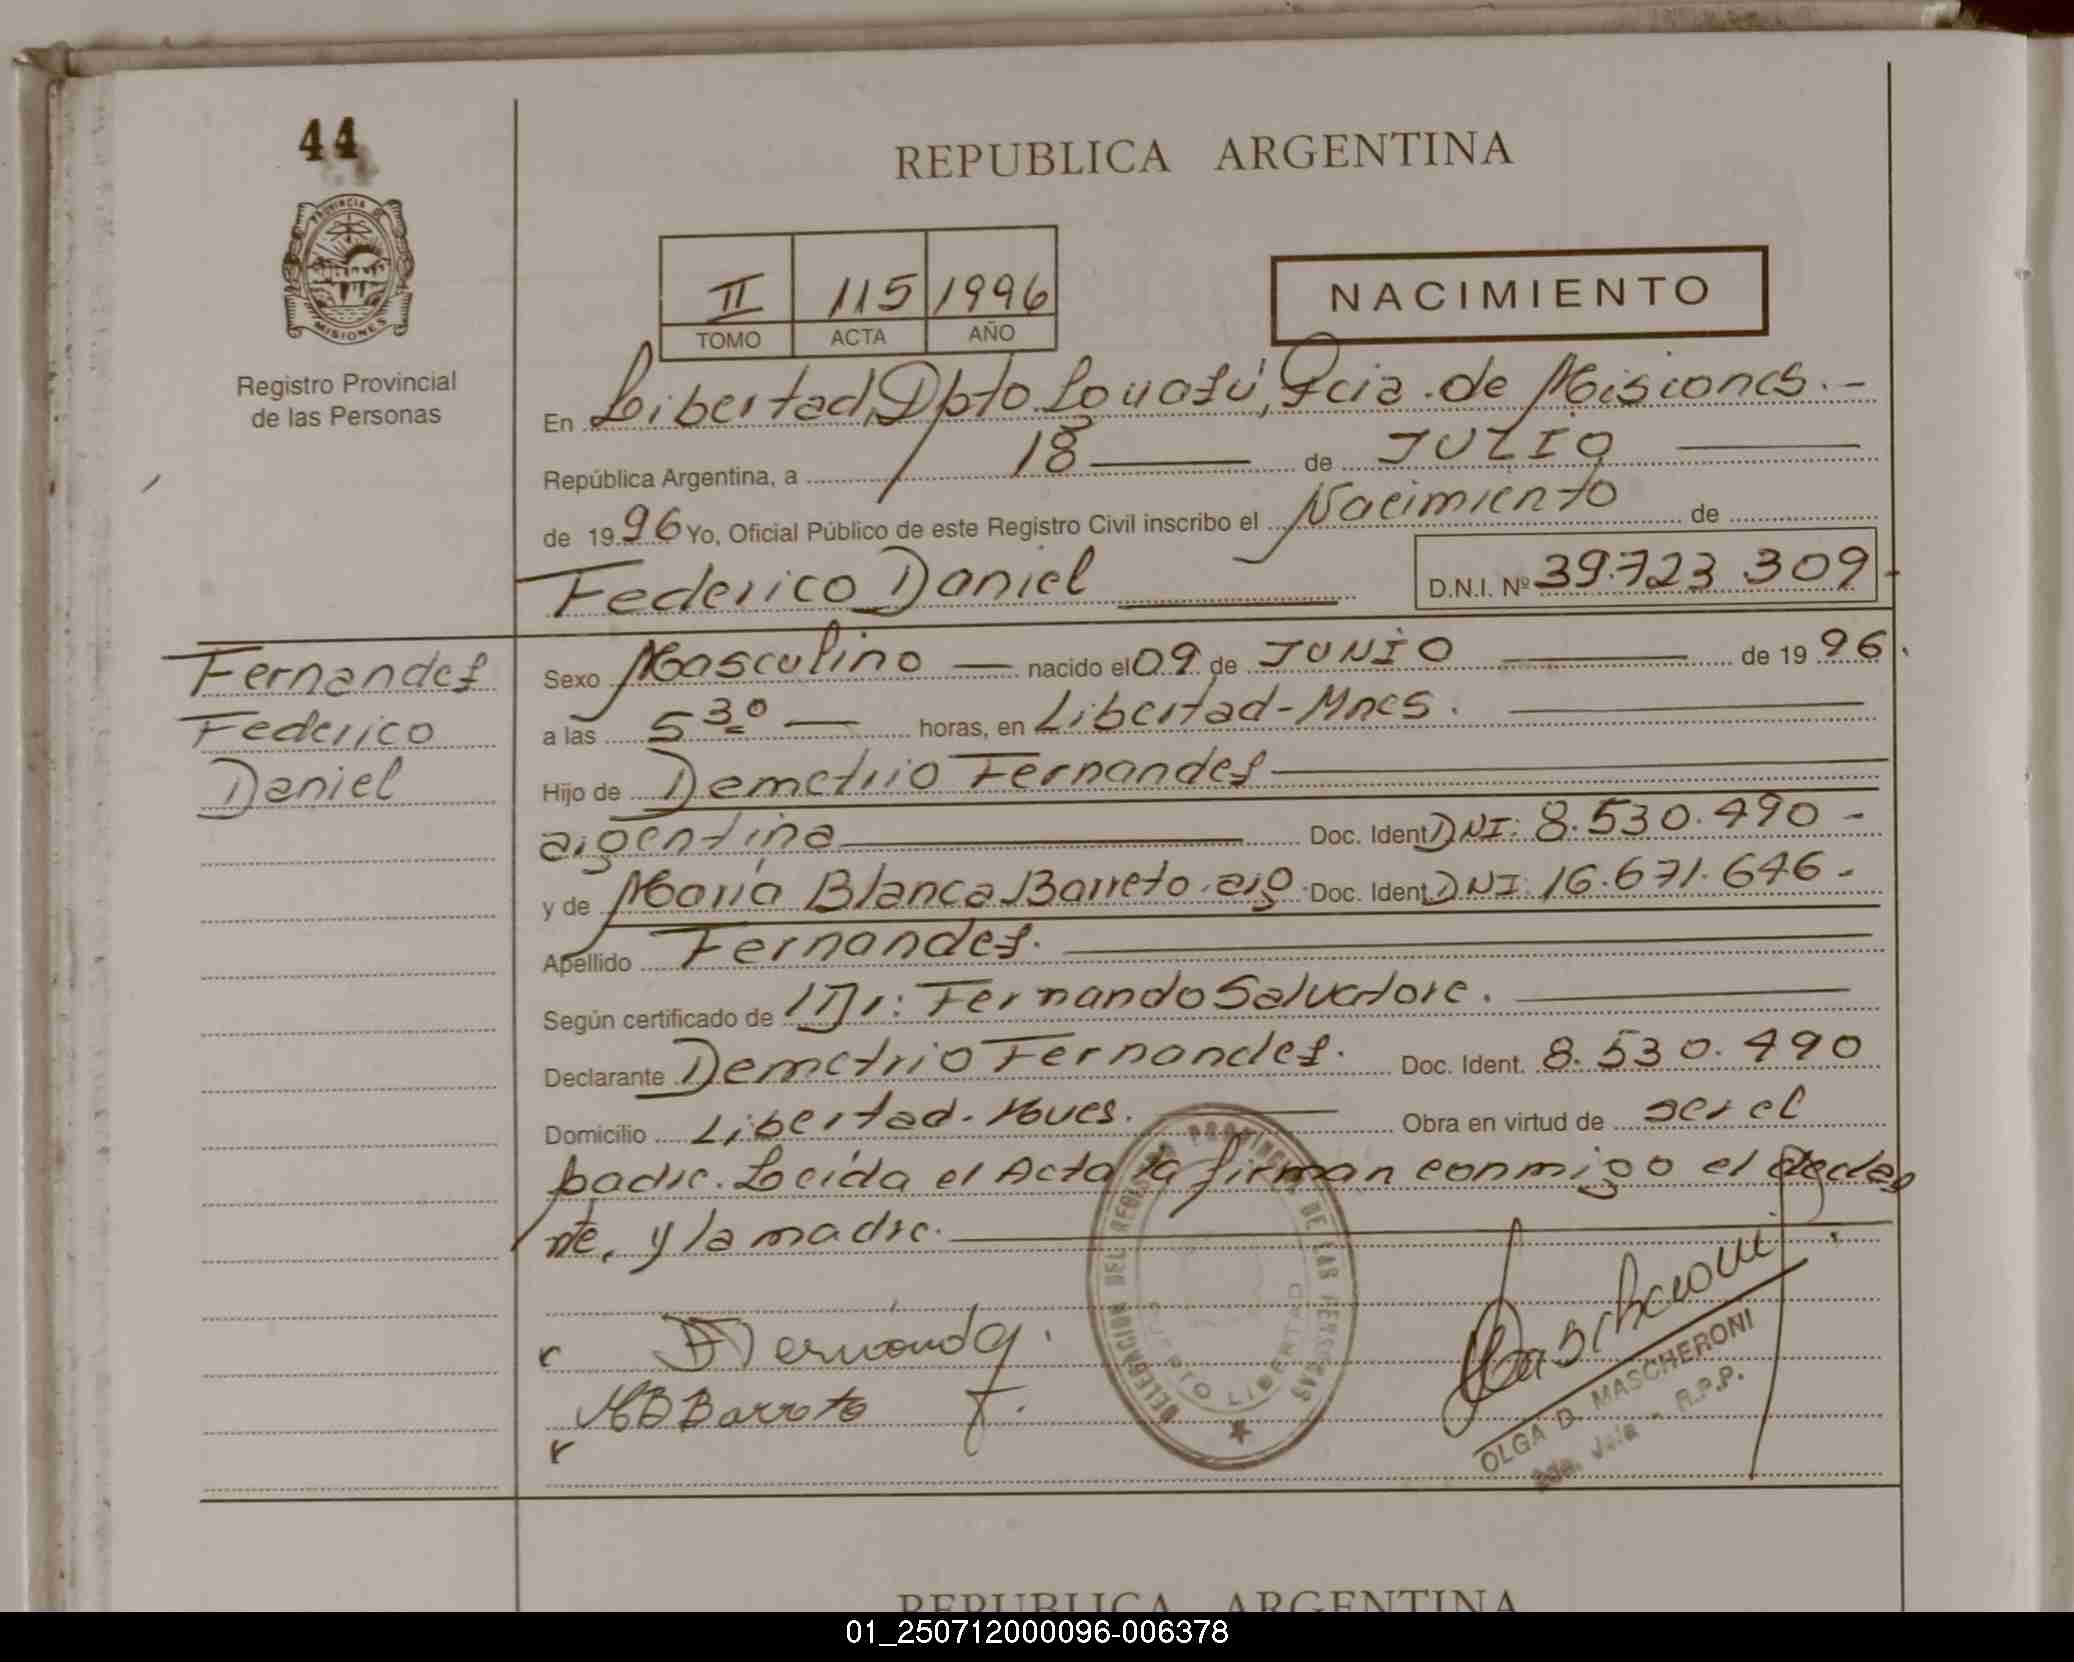 44
REPUBLICA ARGENTINA
PROVINCIA DE MISIONES
Registro Provincial
de las Personas
II 115 1996
TOMO ACTA AÑO
NACIMIENTO
En Libertad, Dpto. Iguazú, Pcia. de Misiones.-
República Argentina, a 18 de JULIO
de 1996 Yo, Oficial Público de este Registro Civil inscribo el Nacimiento de
Federico Daniel D.N.I. Nº 39.723.309
Fernandez
Federico
Daniel
Sexo Masculino nacido el 09 de JUNIO de 1996.
a las 5 30 horas, en Libertad-Mnes.
Hijo de Demetrio Fernandez
argentina Doc. Ident. DNI: 8.530.490-
y de María Blanca Barreto arg. Doc. Ident. DNI: 16.671.646-
Apellido Fernandez.
Según certificado de Dr: Fernando Salvatore.
Declarante Demetrio Fernandez. Doc. Ident. 8.530.490
Domicilio Libertad- Obra en virtud de ser el
padre. Leída el Acta la firman conmigo el
nte, y la madre.
DELEGACION DEL REGISTRO PROVINCIAL DE LAS PERSONAS
PUERTO LIBERTAD
MB Barreto
Mascheroni
OLGA D. MASCHERONI
R.P.P.
REPUBLICA ARGENTINA
01_250712000096-006378